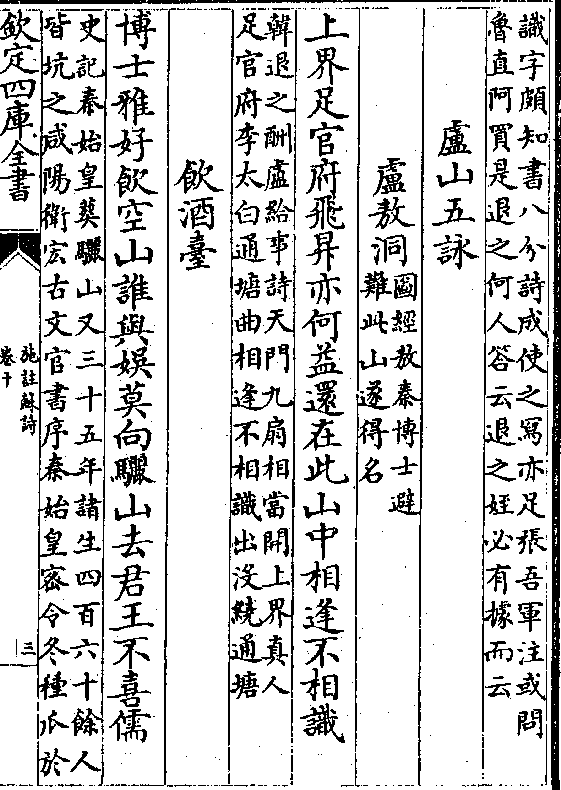 識字頗知書八分詩成使之寫亦足張吾軍注或問
魯直阿買是退之何人答云退之姪必有據而云
盧山五詠
盧敖洞圖經敖秦博士避
難此山遂得名
上界足官府飛昇亦何益還在此山中相逢不相識
韓退之酬盧給事詩天門九扇相當開上界真人
足官府李太白通塘曲相逢不相識出没繞通塘
飲酒臺
博士雅好飲空山誰與娛莫向驪山去君王不喜儒
史記秦始皇葬驪山又三十五年諸生四百六十餘人
皆坑之咸陽衛宏古文官書序秦始皇宻令冬種瓜於
欽定四庫全書
施註蘇詩
卷十
三